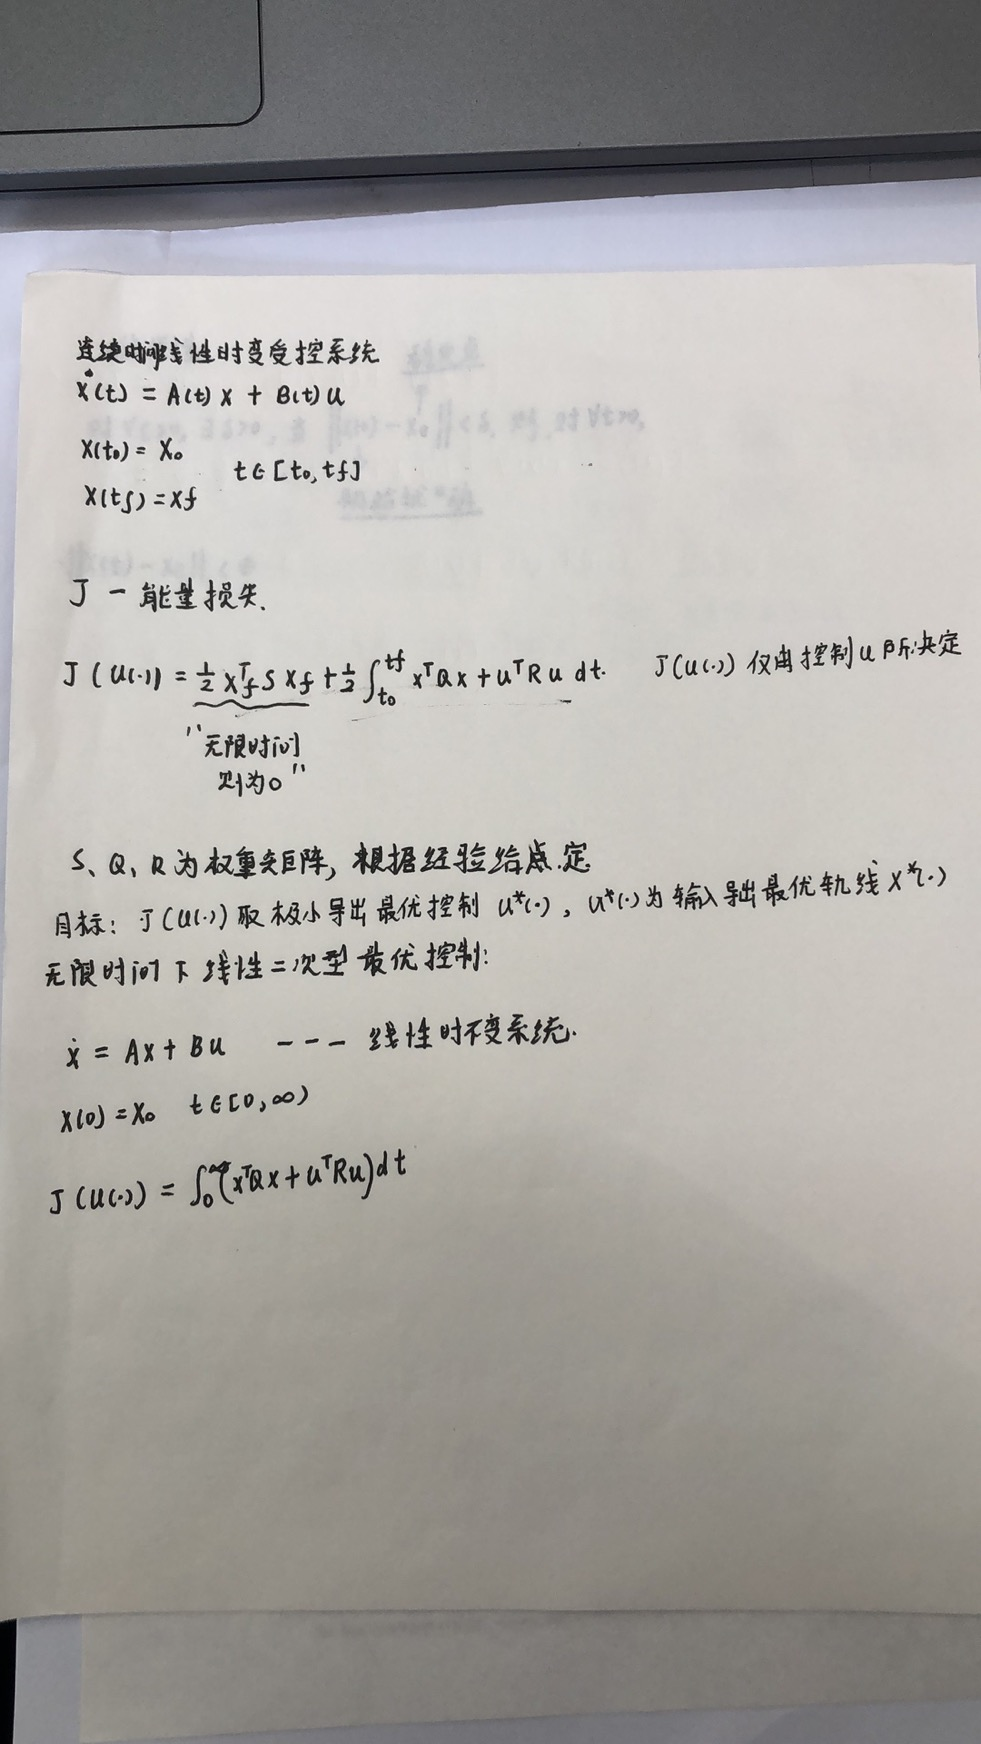 连续时间线性时变受控系统
ẋ(t) = A(t)x + B(t)u
x(t₀) = x₀
t∈[t₀,tf]
x(tf) = xf
J — 能量损失.
J(u(·)) = ½ xfᵀ S xf + ½ ∫t₀^tf xᵀQx + uᵀRu dt. J(u(·)) 仅由控制u所决定
"无限时间
则为0"
S、Q、R为权重矩阵, 根据经验给定
目标: J(u(·))取极小导出最优控制 u*(·), u*(·)为输入导出最优轨线 x*(·)
无限时间下线性二次型最优控制:
ẋ = Ax + Bu --- 线性时不变系统.
x(0) = x₀ t∈[0,∞)
J(u(·)) = ∫₀^∞ (xᵀQx + uᵀRu)dt